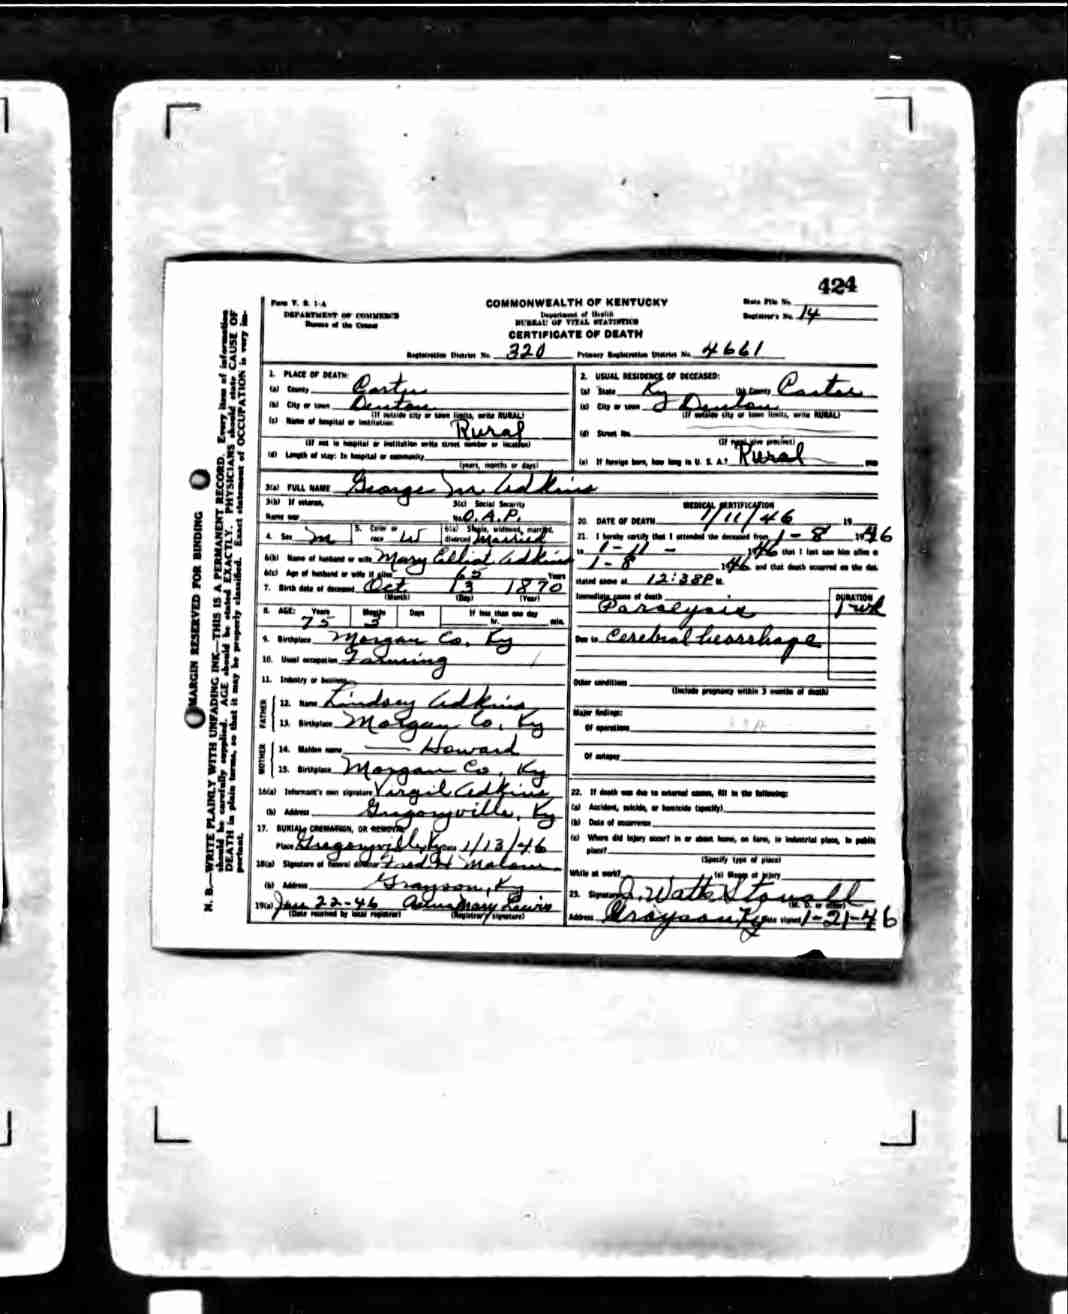 424
Form V. S. 1-A
COMMONWEALTH OF KENTUCKY
State File No.
DEPARTMENT OF COMMERCE
Department of Health
Registrar's No. 14
Bureau of the Census
BUREAU OF VITAL STATISTICS
CERTIFICATE OF DEATH
Registration District No. 320 Primary Registration District No. 4661
MARGIN RESERVED FOR BINDING
N. B.—WRITE PLAINLY WITH UNFADING INK—THIS IS A PERMANENT RECORD. Every item of information
should be carefully supplied. AGE should be stated EXACTLY. PHYSICIANS should state CAUSE OF
DEATH in plain terms, so that it may be properly classified. Exact statement of OCCUPATION is very im-
portant.
1. PLACE OF DEATH:
(a) County Carter
(b) City or town Denton
(If outside city or town limits, write RURAL)
(c) Name of hospital or institution: Rural
(If not in hospital or institution write street number or location)
(d) Length of stay: In hospital or community
(years, months or days)
2. USUAL RESIDENCE OF DECEASED:
(a) State Ky (b) County Carter
(c) City or town Denton
(If outside city or town limits, write RURAL)
(d) Street No.
(If rural give precinct)
(e) If foreign born, how long in U. S. A.? Rural
3(a) FULL NAME George M Adkins
3(b) If veteran, 3(c) Social Security
Name war No. O.A.P.
4. Sex M 5. Color or race W 6(a) Single, widowed, married, divorced Married
6(b) Name of husband or wife Mary Elliot Adkins
6(c) Age of husband or wife if alive 65 Years
7. Birth date of deceased Oct 13 1870
(Month) (Day) (Year)
8. AGE: Years Months Days If less than one day
75 3 hr. min.
9. Birthplace Morgan Co, Ky
10. Usual occupation Farming
11. Industry or business
FATHER
12. Name Lindsey Adkins
13. Birthplace Morgan Co, Ky
MOTHER
14. Maiden name — Howard
15. Birthplace Morgan Co, Ky
16(a) Informant's own signature Virgil Adkins
(b) Address Gregoryville, Ky
17. BURIAL, CREMATION, OR REMOVAL
Place Gregoryville, Ky Date 1/13/46
18(a) Signature of funeral director Fred H Malone
(b) Address Grayson, Ky
19(a) Jan 22-46 Anna Mary Lewis
(Date received by local registrar) (Registrar's signature)
MEDICAL CERTIFICATION
20. DATE OF DEATH 1/11/46 19
21. I hereby certify that I attended the deceased from 1-8 1946
to 1-11- 1946 that I last saw him alive on
1-8 1946 and that death occurred on the date
stated above at 12:38P M.
Immediate cause of death
DURATION
Paralysis 1 wk
Due to Cerebral hemorrhage
Other conditions
(Include pregnancy within 3 months of death)
Major findings:
Of operations
Of autopsy
22. If death was due to external causes, fill in the following:
(a) Accident, suicide, or homicide (specify)
(b) Date of occurrence
(c) Where did injury occur? in or about home, on farm, in industrial place, in public
place?
(Specify type of place)
While at work? (e) Means of injury
23. Signature J. Watts Stovall
(M. D. or other)
Address Grayson Ky Date signed 1-21-46